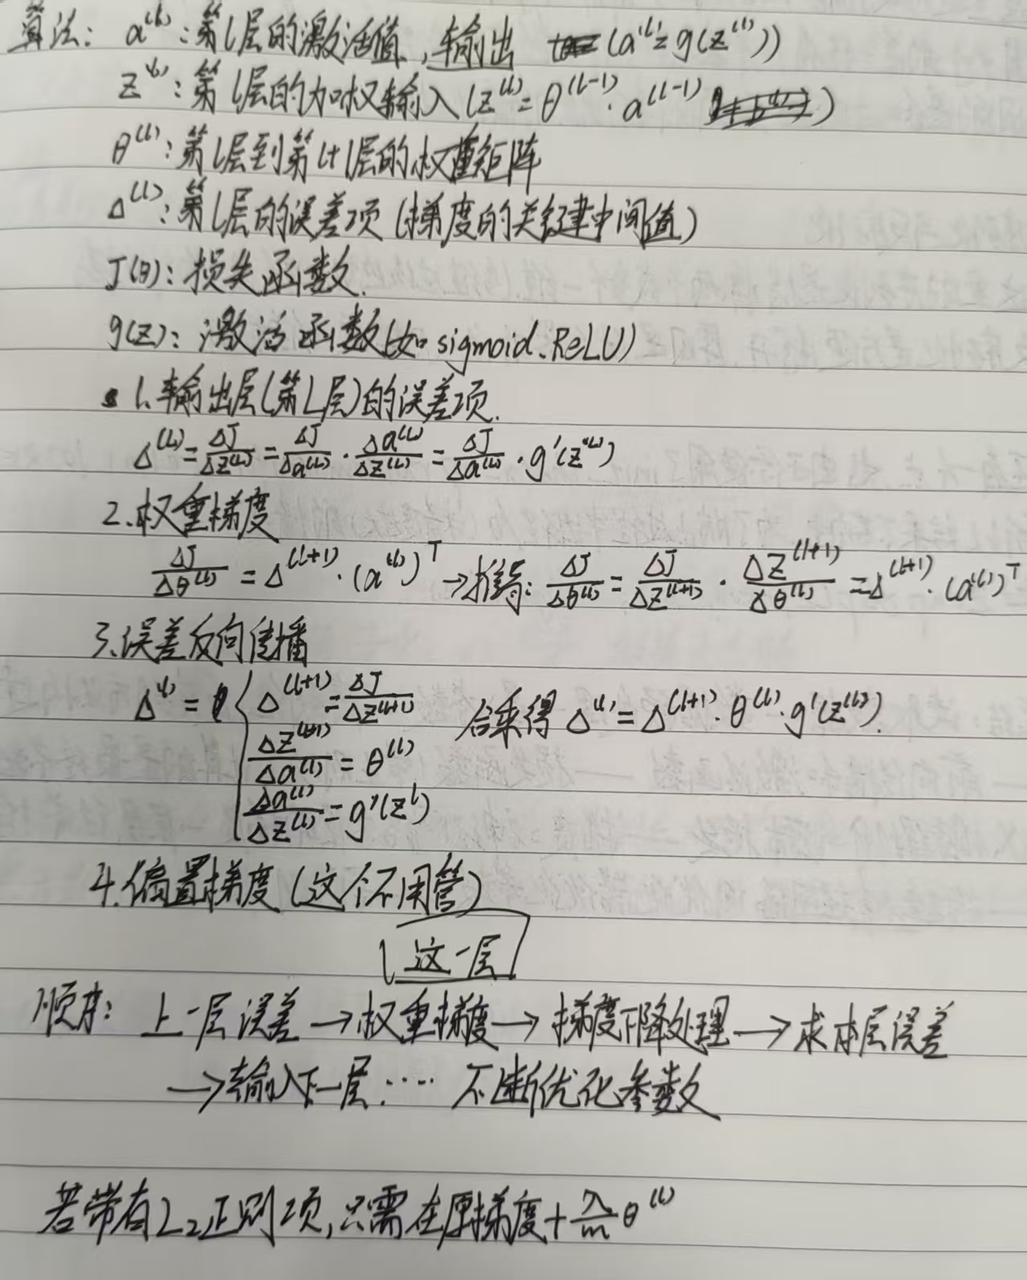 算法: a⁽ˡ⁾:第l层的激活值,输出 (a⁽ˡ⁾=g(z⁽ˡ⁾))
z⁽ˡ⁾:第l层的加权输入(z⁽ˡ⁾=θ⁽ˡ⁻¹⁾·a⁽ˡ⁻¹⁾)
θ⁽ˡ⁾:第l层到第l+1层的权重矩阵
Δ⁽ˡ⁾:第l层的误差项(梯度的关键中间值)
J(θ):损失函数.
g(z):激活函数(如sigmoid、ReLU)
1.输出层(第L层)的误差项.
Δ⁽ᴸ⁾=ΔJ/Δz⁽ᴸ⁾=ΔJ/Δa⁽ᴸ⁾·Δa⁽ᴸ⁾/Δz⁽ᴸ⁾=ΔJ/Δa⁽ᴸ⁾·g'(z⁽ᴸ⁾)
2.权重梯度
ΔJ/Δθ⁽ˡ⁾=Δ⁽ˡ⁺¹⁾·(a⁽ˡ⁾)ᵀ→推导:ΔJ/Δθ⁽ˡ⁾=ΔJ/Δz⁽ˡ⁺¹⁾·Δz⁽ˡ⁺¹⁾/Δθ⁽ˡ⁾=Δ⁽ˡ⁺¹⁾·(a⁽ˡ⁾)ᵀ
3.误差反向传播
Δ⁽ˡ⁾={Δ⁽ˡ⁺¹⁾=ΔJ/Δz⁽ˡ⁺¹⁾ 合乘得 Δ⁽ˡ⁾=Δ⁽ˡ⁺¹⁾·θ⁽ˡ⁾·g'(z⁽ˡ⁾).
Δz⁽ˡ⁺¹⁾/Δa⁽ˡ⁾=θ⁽ˡ⁾
Δa⁽ˡ⁾/Δz⁽ˡ⁾=g'(zˡ)
4.偏置梯度(这个不用管)
这一层
顺序: 上一层误差→权重梯度→梯度下降处理→求本层误差
→输入下一层····不断优化参数
若带有L₂正则项,只需在原梯度+λ/m θ⁽ˡ⁾